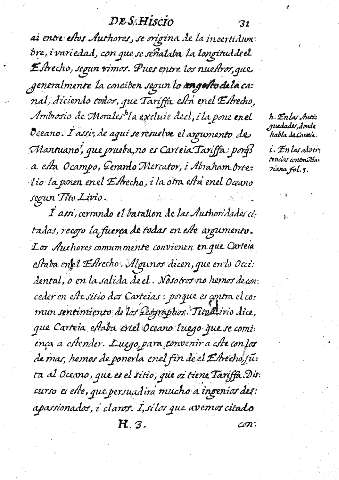 DE S. HISCIO 31
ai entre estos Authores, se origina de la incertidum
bre, i variedad, con que se señalaba la longitud de el
Estrecho, segun vimos. Pues entre los nuestros, que
generalmente la conciben segun lo angosto de la ca
nal, diciendo todos, que Tariffa està en el Estrecho,
Ambrosio de Morales h la excluie de el, i la pone en el
Oceano. I assi, de aqui se resuelve el argumento de
Mantuano, i que prueba, no es Carteia Tariffa: porq̃
a esta Ocampo, Gerardo Mercator, i Abraham Orte-
lio la ponen en el Estrecho, i la otra està en el Oceano
segun Tito Livio.
I assi, cerrando el batallon de las Authoridades ci
tadas, recojo la fuerça de todas en este argumento.
Los Authores comummente convienen en que Carteia
estaba en el Estrecho. Algunos dicen, que en lo Occi
dental, o en la salida de el. Nosotros no hemos de con
ceder en este sitio dos Carteias: porque es contra el co
mun sentimiento de los Geographos. Tito Livio dice,
que Carteia estaba en el Oceano luego que se comi
ença a estender. Luego para convenir a este con los
de mas, hemos de ponerla en el fin de el Estrecho, jũ
ta al Oceano, que es el sitio, que oi tiene Tariffa. Dis
curso es este, que persuadirá mucho a ingenios des-
apassionados, i claros. I, si los que avemos citado
H. 3. con-
h. En las Anti
guedades, donde
habla de Carteia.
i. En las
fol. 5.